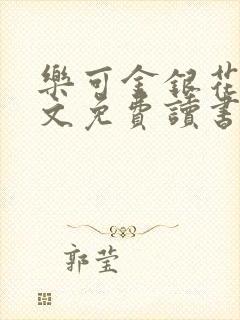 樂可金銀花
文免費讀書
郭瑩